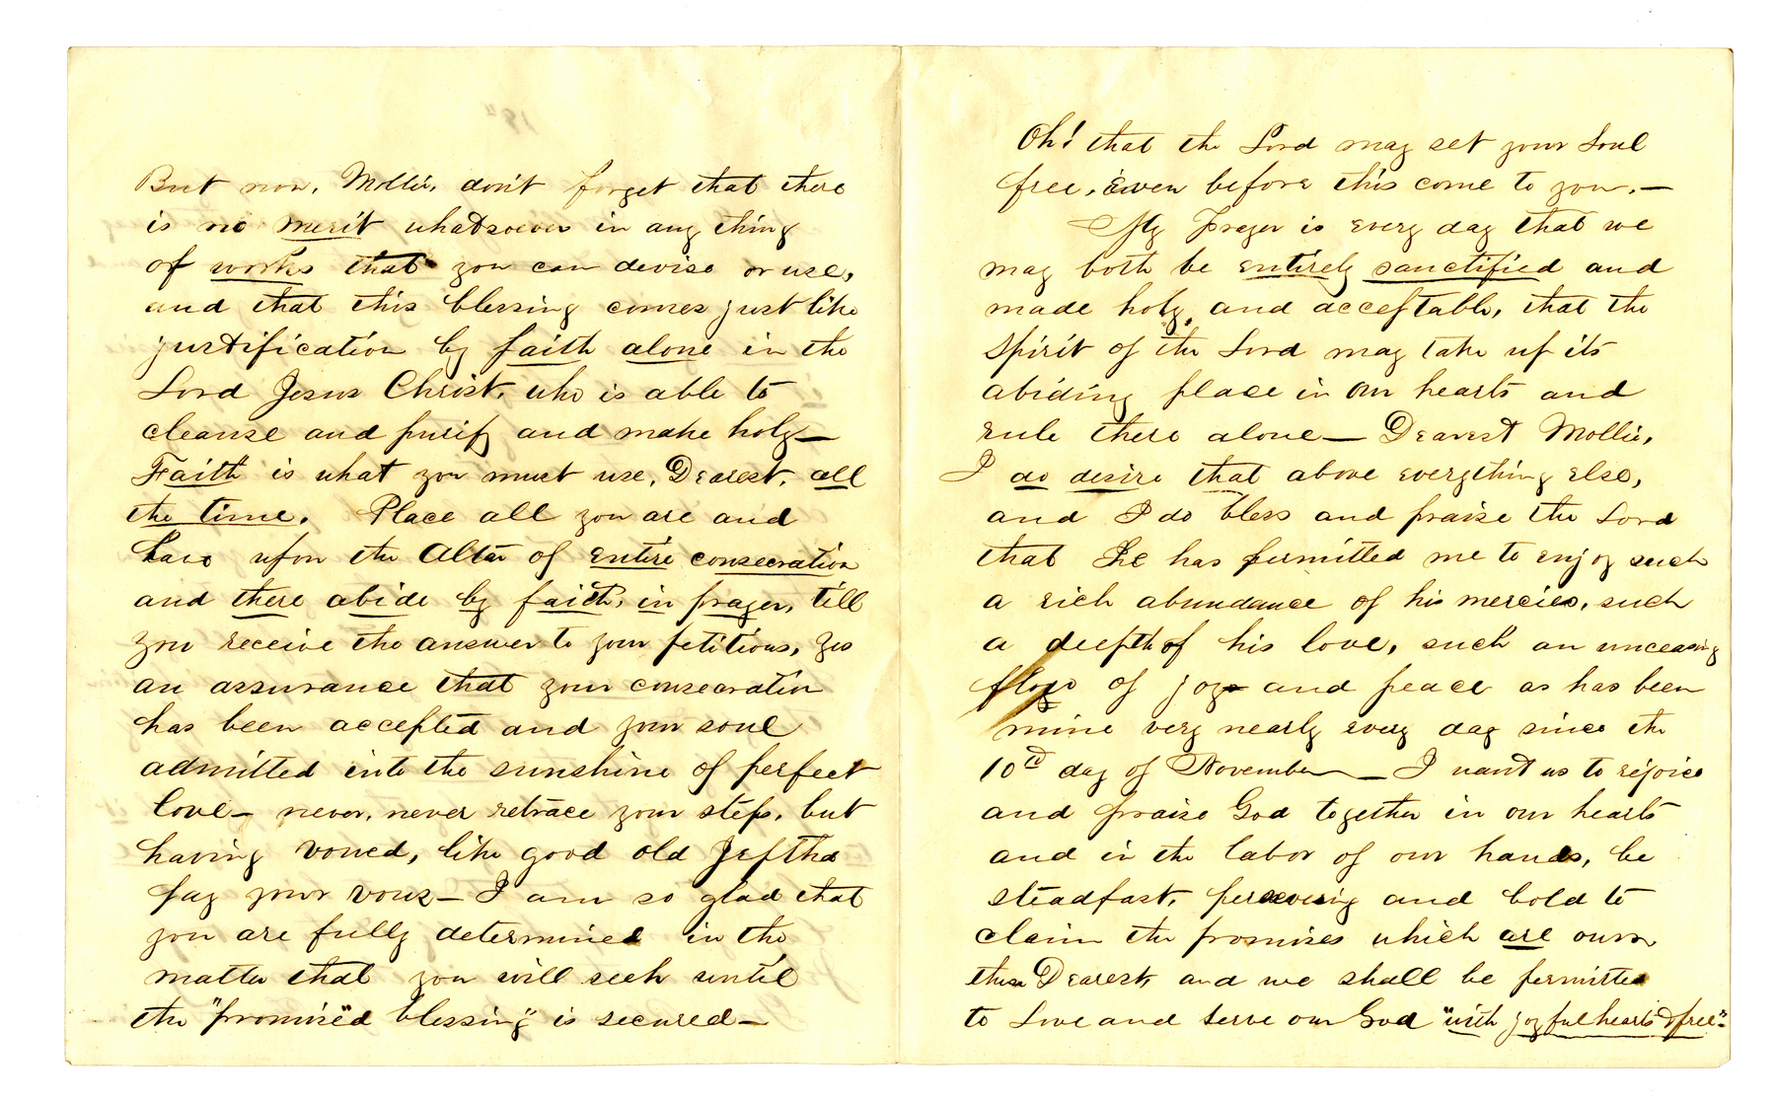 But now, Mollie, don't forget that there
is no merit whatsoever in any thing
of works that you can devise or use,
and that this blessing comes just like
justification by faith alone in the
Lord Jesus Christ, who is able to
cleanse and purify and make holy—
Faith is what you must use, Dearest, all
the time. Place all you are and
have upon the Altar of entire consecration
and there abide by faith, in prayer, till
you receive the answer to your petitions, yes
an assurance that your consecration
has been accepted and your soul
admitted into the sunshine of perfect
love— never, never retrace your steps, but
having vowed, like good old Jeftha
pay your vows— I am so glad that
you are fully determined in the
matter that you will seek until
the "promised blessing" is secured—
Oh! that the Lord may set your Soul
free, even before this come to you.—
My Prayer is every day that we
may both be entirely sanctified and
made holy, and acceptable, that the
Spirit of the Lord may take up its
abiding place in our hearts and
rule there alone— Dearest Mollie,
I do desire that above everything else,
and I do bless and praise the Lord
that He has permitted me to enjoy such
a rich abundance of his mercies, such
a deepth of his love, such an unceasing
flow of joy and peace as has been
mine very nearly every day since the
10th day of November— I want us to rejoice
and praise God together in our hearts
and in the labor of our hands, be
steadfast, persevering and bold to
claim the promises which are ours,
then Dearest, and we shall be permitted
to Love and serve our God "with joyful hearts & free".